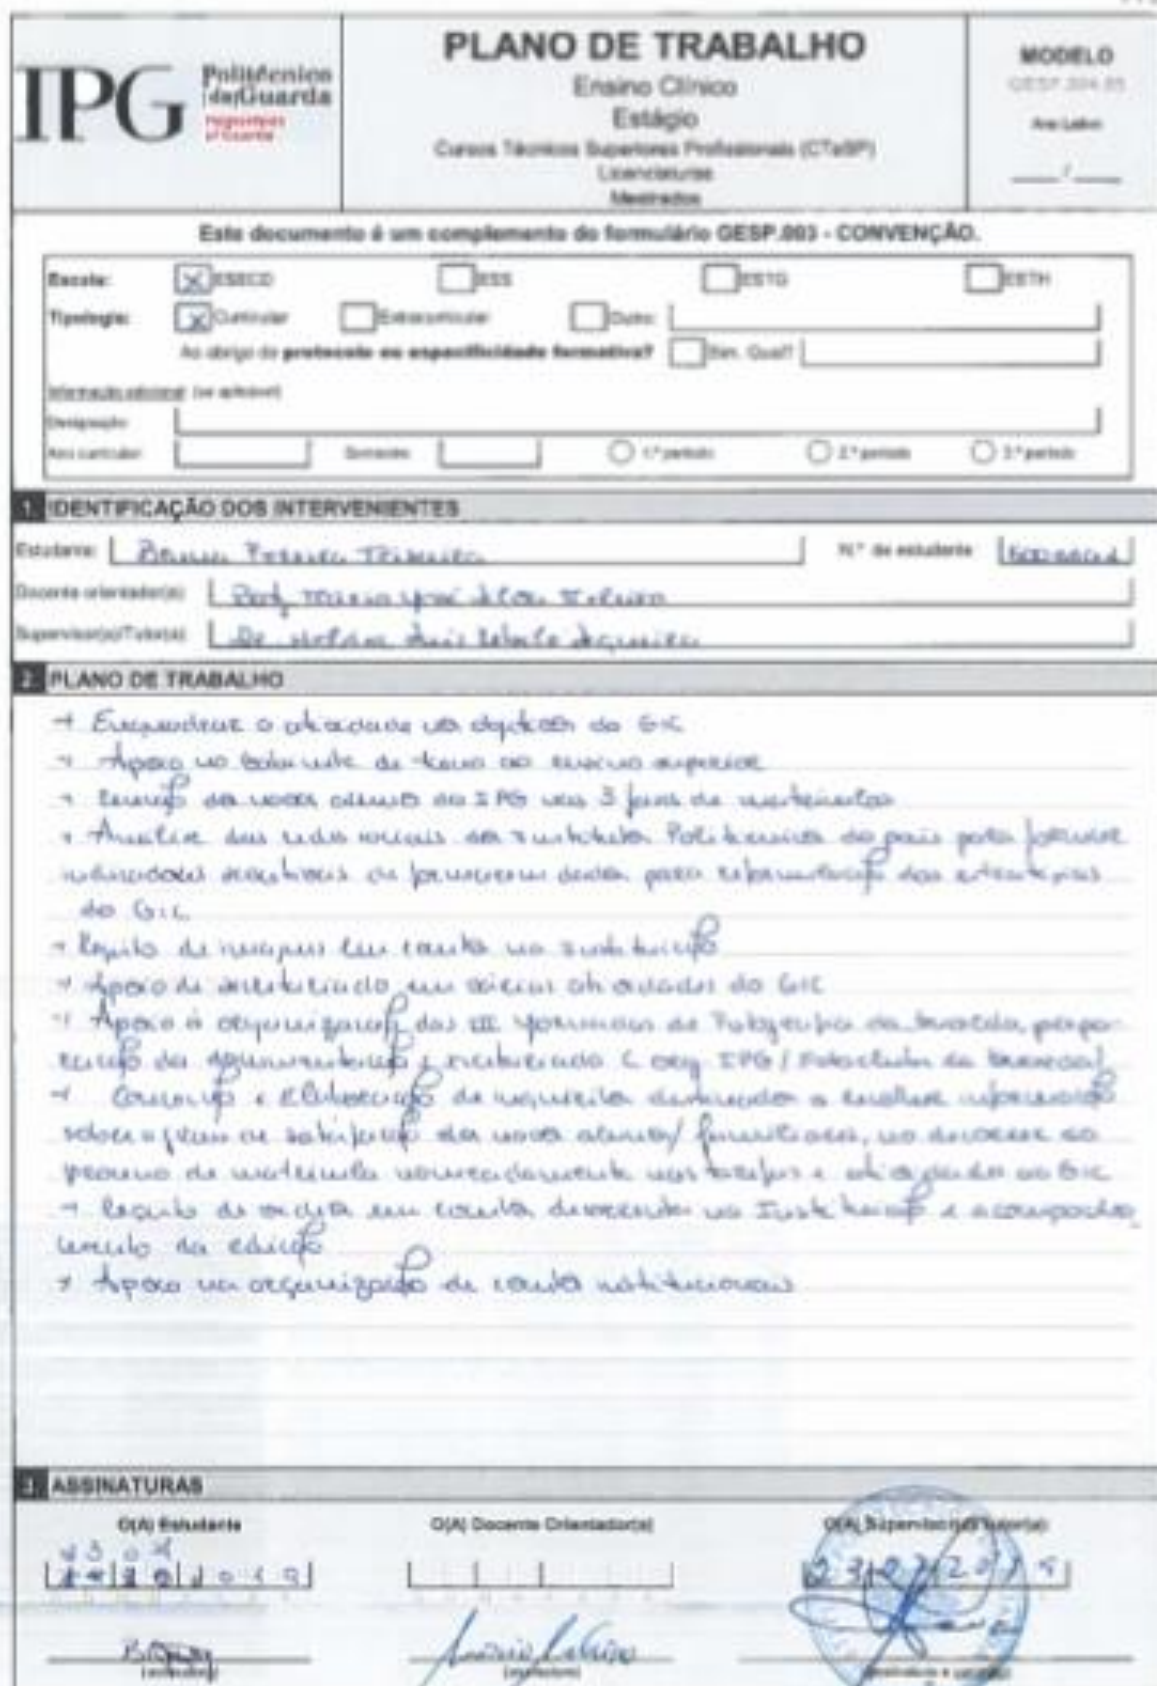 IPG Politécnico da Guarda
PLANO DE TRABALHO
Ensino Clínico
Estágio
Cursos Técnicos Superiores Profissionais (CTeSP)
Licenciaturas
Mestrados
MODELO
GESP.004.05
Ano Letivo
____ / ____
Este documento é um complemento do formulário GESP.003 - CONVENÇÃO.
Escola: X ESECD ESS ESTG ESTH
Tipologia: X Curricular Extracurricular Outro:
Ao abrigo do protocolo ou especificidade formativa? Sim. Qual?
Informação adicional (se aplicável)
Designação:
Ano curricular: Semestre: 1.º período 2.º período 3.º período
1. IDENTIFICAÇÃO DOS INTERVENIENTES
Estudante: Teixeira N.º de estudante
Docente orientador(a):
Supervisor(a)/Tutor(a): Dr. Luis
2. PLANO DE TRABALHO
→ Enquadrar a atividade nos objetivos do GIC
→ Apoio no Gabinete de acesso ao ensino superior
→ Receção dos novos alunos do IPG nas 3 fases de matrículas
→ Análise das redes sociais dos Institutos Politécnicos do país para fornecer
indicadores para das estratégias
do GIC
→ Registo de imagens em eventos na Instituição
→ Apoio de secretariado em várias atividades do GIC
→ Apoio à organização das III Jornadas de Fotografia da Guarda, prepa-
ração da documentação e secretariado (org. IPG / Fotoclube da Guarda)
→ Conceção e Elaboração de inquéritos destinados a recolher informação
sobre o grau de satisfação dos novos alunos/ familiares, no decorrer do
processo de matrícula nomeadamente nas tarefas e atividades do GIC
→ Registo de vídeos em eventos decorrentes na Instituição e acompanha-
mento da edição
→ Apoio na organização de eventos institucionais
3. ASSINATURAS
O(A) Estudante O(A) Docente Orientador(a) O(A) Supervisor(a)/Tutor(a)
23 07 201
(assinatura) (assinatura) (assinatura e carimbo)